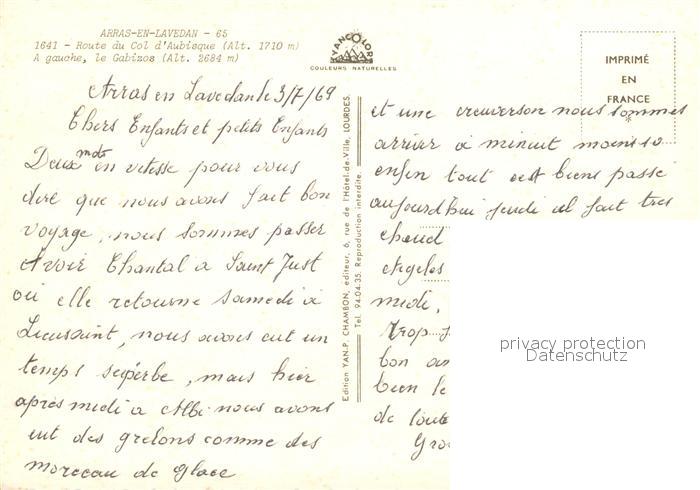 ARRAS-EN-LAVEDAN - 65
1641 - Route du Col d'Aubisque (Alt. 1710 m)
A gauche, le Gabizos (Alt. 2684 m)
YANCOLOR
COULEURS NATURELLES
IMPRIMÉ
EN
FRANCE
Arras en Lavedan le 3/7/69
Chers Enfants et petits Enfants
Deux mots en vitesse pour vous
dire que nous avons fait bon
voyage, nous sommes passer
Avoir Chantal a Saint Just
où elle retourne samedi à
Lieusaint, nous avons eut un
temps superbe, mais hier
après midi a Albi nous avons
eut des grelons comme des
morceau de glace
Edition YAN-P. CHAMBON, éditeur, 6, rue de l'Hôtel-de-Ville, LOURDES.
Tel. 94-04-35. Reproduction interdite.
et une nous sommes
arriver à minuit moins 10
enfin tout est biens passé
aujourd'hui jeudi il fait tres
chaud
midi,
trop
bon
bien le
de toute
Gro
privacy protection
Datenschutz